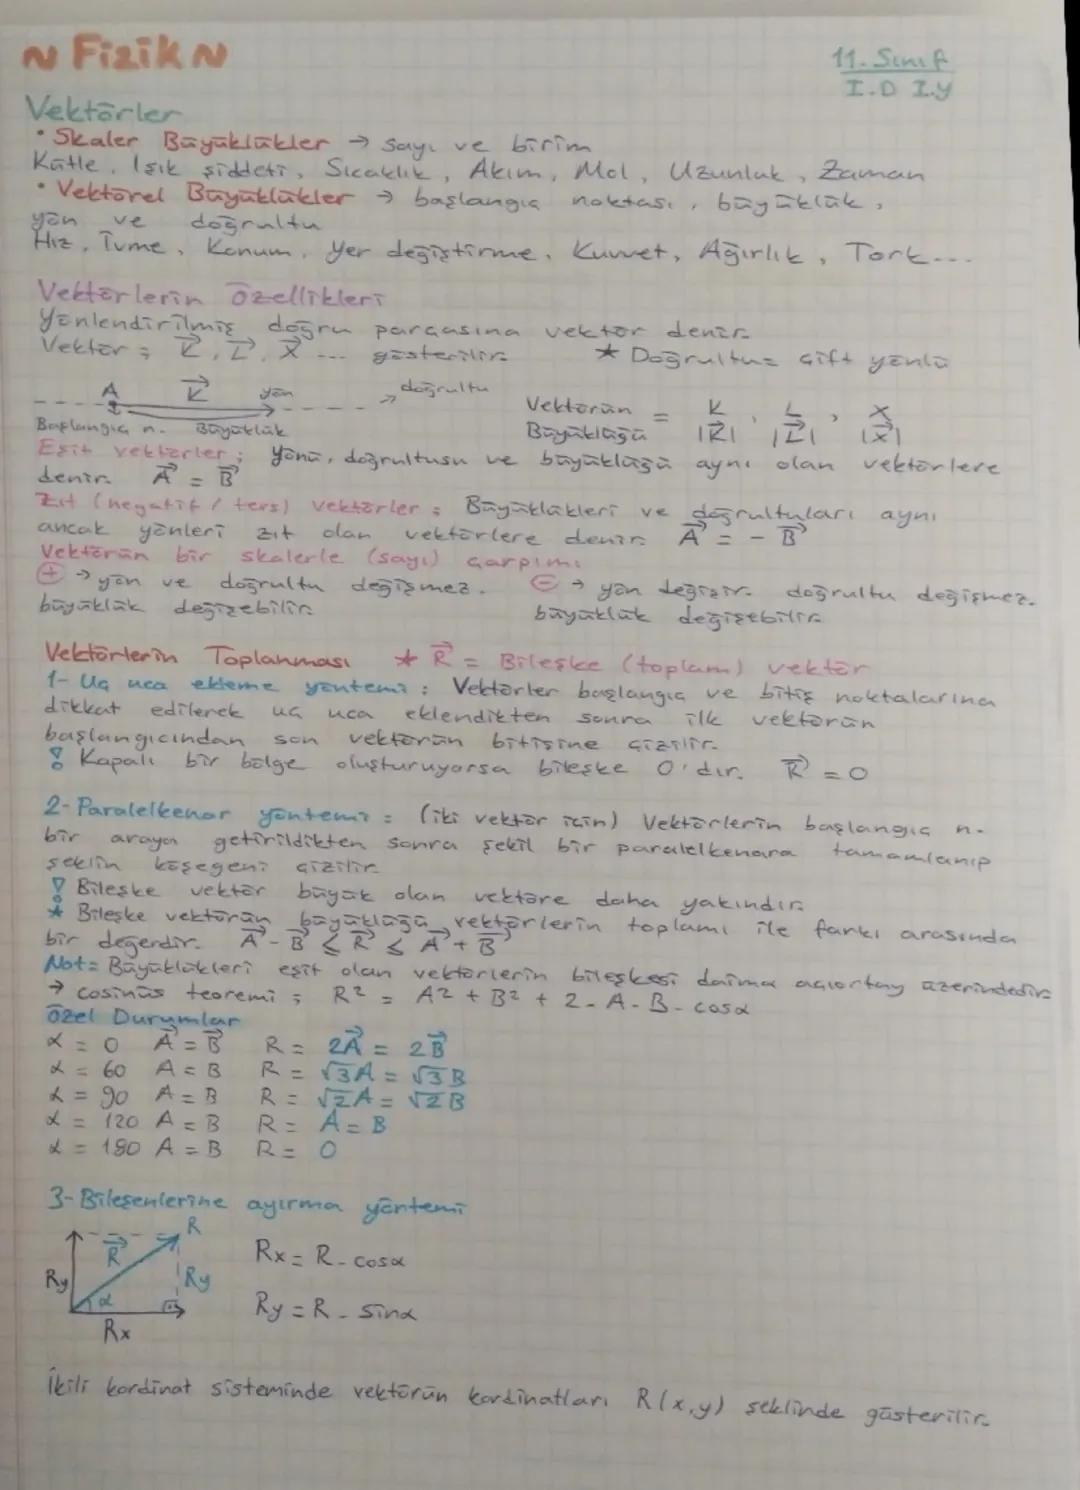 ~ Fizik ~
11. Sınıf
I.D I.Y
Vektörler
• Skaler Büyüklükler → sayı ve birim
Kütle, Işık şiddeti, Sıcaklık, Akım, Mol, Uzunluk, Zaman
• Vektörel Büyüklükler → başlangıç noktası, büyüklük,
yön ve doğrultu
Hız, İvme, Konum, Yer değiştirme, Kuvvet, Ağırlık, Tork...
Vektörlerin Özellikleri
Yönlendirilmiş doğru parçasına vektör denir.
Vektör; K⃗, L⃗, X⃗ ... gösterilir.
* Doğrultu= çift yönlü
A K⃗ yön → doğrultu
Başlangıç n. Büyüklük
Vektörün = K, L, X
Büyüklüğü |K⃗| |L⃗| |X⃗|
Eşit vektörler; Yönü, doğrultusu ve büyüklüğü aynı olan vektörlere
denir. A⃗ = B⃗
Zıt (negatif / ters) vektörler; Büyüklükleri ve doğrultuları aynı
ancak yönleri zıt olan vektörlere denir. A⃗ = - B⃗
Vektörün bir skalerle (sayı) çarpımı
⊕ → yön ve doğrultu değişmez.
büyüklük değişebilir.
⊖ → yön değişir. doğrultu değişmez.
büyüklük değişebilir.
Vektörlerin Toplanması * R⃗ = Bileşke (toplam) vektör
1- Uç uca ekleme yöntemi: Vektörler başlangıç ve bitiş noktalarına
dikkat edilerek uç uca eklendikten sonra ilk vektörün
başlangıcından son vektörün bitişine çizilir.
! Kapalı bir bölge oluşturuyorsa bileşke 0'dır. R⃗ = 0
2- Paralelkenar yöntemi: (iki vektör için) Vektörlerin başlangıç n.
bir araya getirildikten sonra şekil bir paralelkenara tamamlanıp
şeklin köşegeni çizilir.
! Bileşke vektör büyük olan vektöre daha yakındır.
* Bileşke vektörün büyüklüğü vektörlerin toplamı ile farkı arasında
bir değerdir. A⃗ - B⃗ ≤ R⃗ ≤ A⃗ + B⃗
Not= Büyüklükleri eşit olan vektörlerin bileşkesi daima açıortay üzerindedir.
→ cosinüs teoremi; R² = A² + B² + 2.A.B.cosα
Özel Durumlar
α = 0 A⃗ = B⃗ R = 2A⃗ = 2B⃗
α = 60 A = B R = √3A = √3B
α = 90 A = B R = √2A = √2B
α = 120 A = B R = A = B
α = 180 A = B R = 0
3- Bileşenlerine ayırma yöntemi
R
R⃗
Ry
Ry
α
Rx
Rx = R.cosα
Ry = R.sinα
İkili kordinat sisteminde vektörün kordinatları R(x,y) şeklinde gösterilir.